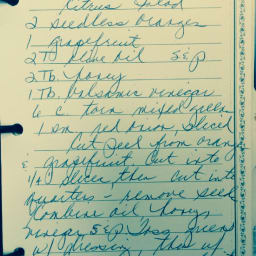 Citrus Salad
2 seedless oranges
1 grapefruit
2 Tb olive oil S&P
2 Tb. honey
1 Tb. balsamic vinegar
6 c torn mixed greens
1 sm red onion, sliced
Cut peel from orange
& grapefruit. Cut into
1/4 slices, then cut into
quarters - remove seed
Combine oil honey
vinegar S&P Toss greens
w/ dressing, then w/